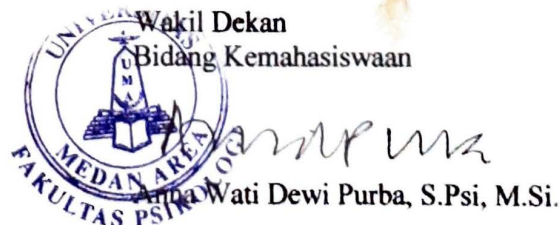 Wakil Dekan
Bidang Kemahasiswaan
UNIVERSITAS
UMA
MEDAN AREA
FAKULTAS PSIKOLOGI
Anna Wati Dewi Purba, S.Psi, M.Si.